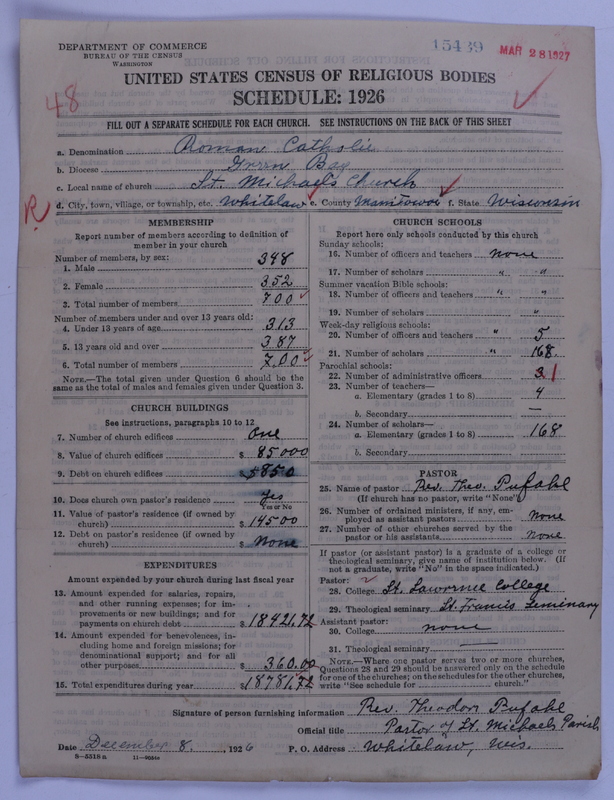 DEPARTMENT OF COMMERCE
BUREAU OF THE CENSUS
WASHINGTON
15439
MAR 28 1927
UNITED STATES CENSUS OF RELIGIOUS BODIES
SCHEDULE: 1926
48
FILL OUT A SEPARATE SCHEDULE FOR EACH CHURCH. SEE INSTRUCTIONS ON THE BACK OF THIS SHEET
a. Denomination Roman Catholic
b. Diocese Green Bay
c. Local name of church St. Michael's Church
R
d. City, town, village, or township, etc. Whitelaw e. County Manitowoc f. State Wisconsin
MEMBERSHIP
Report number of members according to definition of
member in your church
Number of members, by sex:
1. Male 348
2. Female 352
3. Total number of members 700
Number of members under and over 13 years old:
4. Under 13 years of age 313
5. 13 years old and over 387
6. Total number of members 700
NOTE.—The total given under Question 6 should be the
same as the total of males and females given under Question 3.
CHURCH BUILDINGS
See instructions, paragraphs 10 to 12
7. Number of church edifices One
8. Value of church edifices $ 85000
9. Debt on church edifices $ 5850
10. Does church own pastor's residence Yes
Yes or No
11. Value of pastor's residence (if owned by
church) $ 14500
12. Debt on pastor's residence (if owned by
church) $ None
EXPENDITURES
Amount expended by your church during last fiscal year
13. Amount expended for salaries, repairs,
and other running expenses; for im-
provements or new buildings; and for
payments on church debt $ 18421.72
14. Amount expended for benevolences, in-
cluding home and foreign missions; for
denominational support; and for all
other purposes $ 360.00
15. Total expenditures during year $ 18781.72
CHURCH SCHOOLS
Report here only schools conducted by this church
Sunday schools:
16. Number of officers and teachers none
17. Number of scholars " "
Summer vacation Bible schools:
18. Number of officers and teachers " "
19. Number of scholars "
Week-day religious schools:
20. Number of officers and teachers " 5
21. Number of scholars " 168
Parochial schools:
22. Number of administrative officers 1
23. Number of teachers—
a. Elementary (grades 1 to 8) 4
b. Secondary —
24. Number of scholars—
a. Elementary (grades 1 to 8) 168
b. Secondary
PASTOR
25. Name of pastor Rev. Theo. Pufahl
(If church has no pastor, write "None")
26. Number of ordained ministers, if any, em-
ployed as assistant pastors none
27. Number of other churches served by the
pastor or his assistants none
If pastor (or assistant pastor) is a graduate of a college or
theological seminary, give name of institution below. (If
not a graduate, write "No" in the space indicated.)
Pastor:
28. College St. Lawrence College
29. Theological seminary St. Francis Seminary
Assistant pastor:
30. College none
31. Theological seminary —
NOTE.—Where one pastor serves two or more churches,
Questions 28 and 29 should be answered only on the schedule
for one of the churches; on the schedules for the other churches,
write "See schedule for church."
Signature of person furnishing information Rev. Theodore Pufahl
Official title Pastor of St. Michaels Parish
Date December 8, 1926 P. O. Address Whitelaw, Wis.
8-5518 a